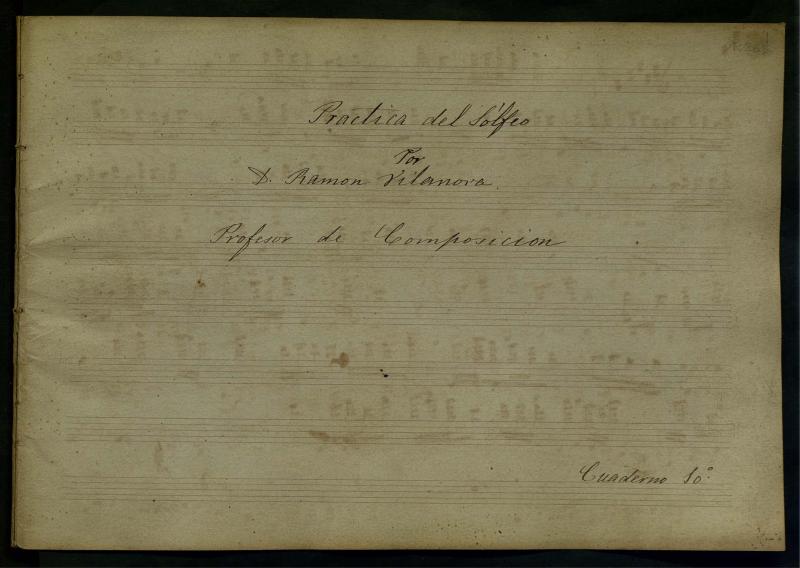 Practica del Solfeo
Por
D. Ramon Vilanova.
Profesor de Composicion
Cuaderno 1o.